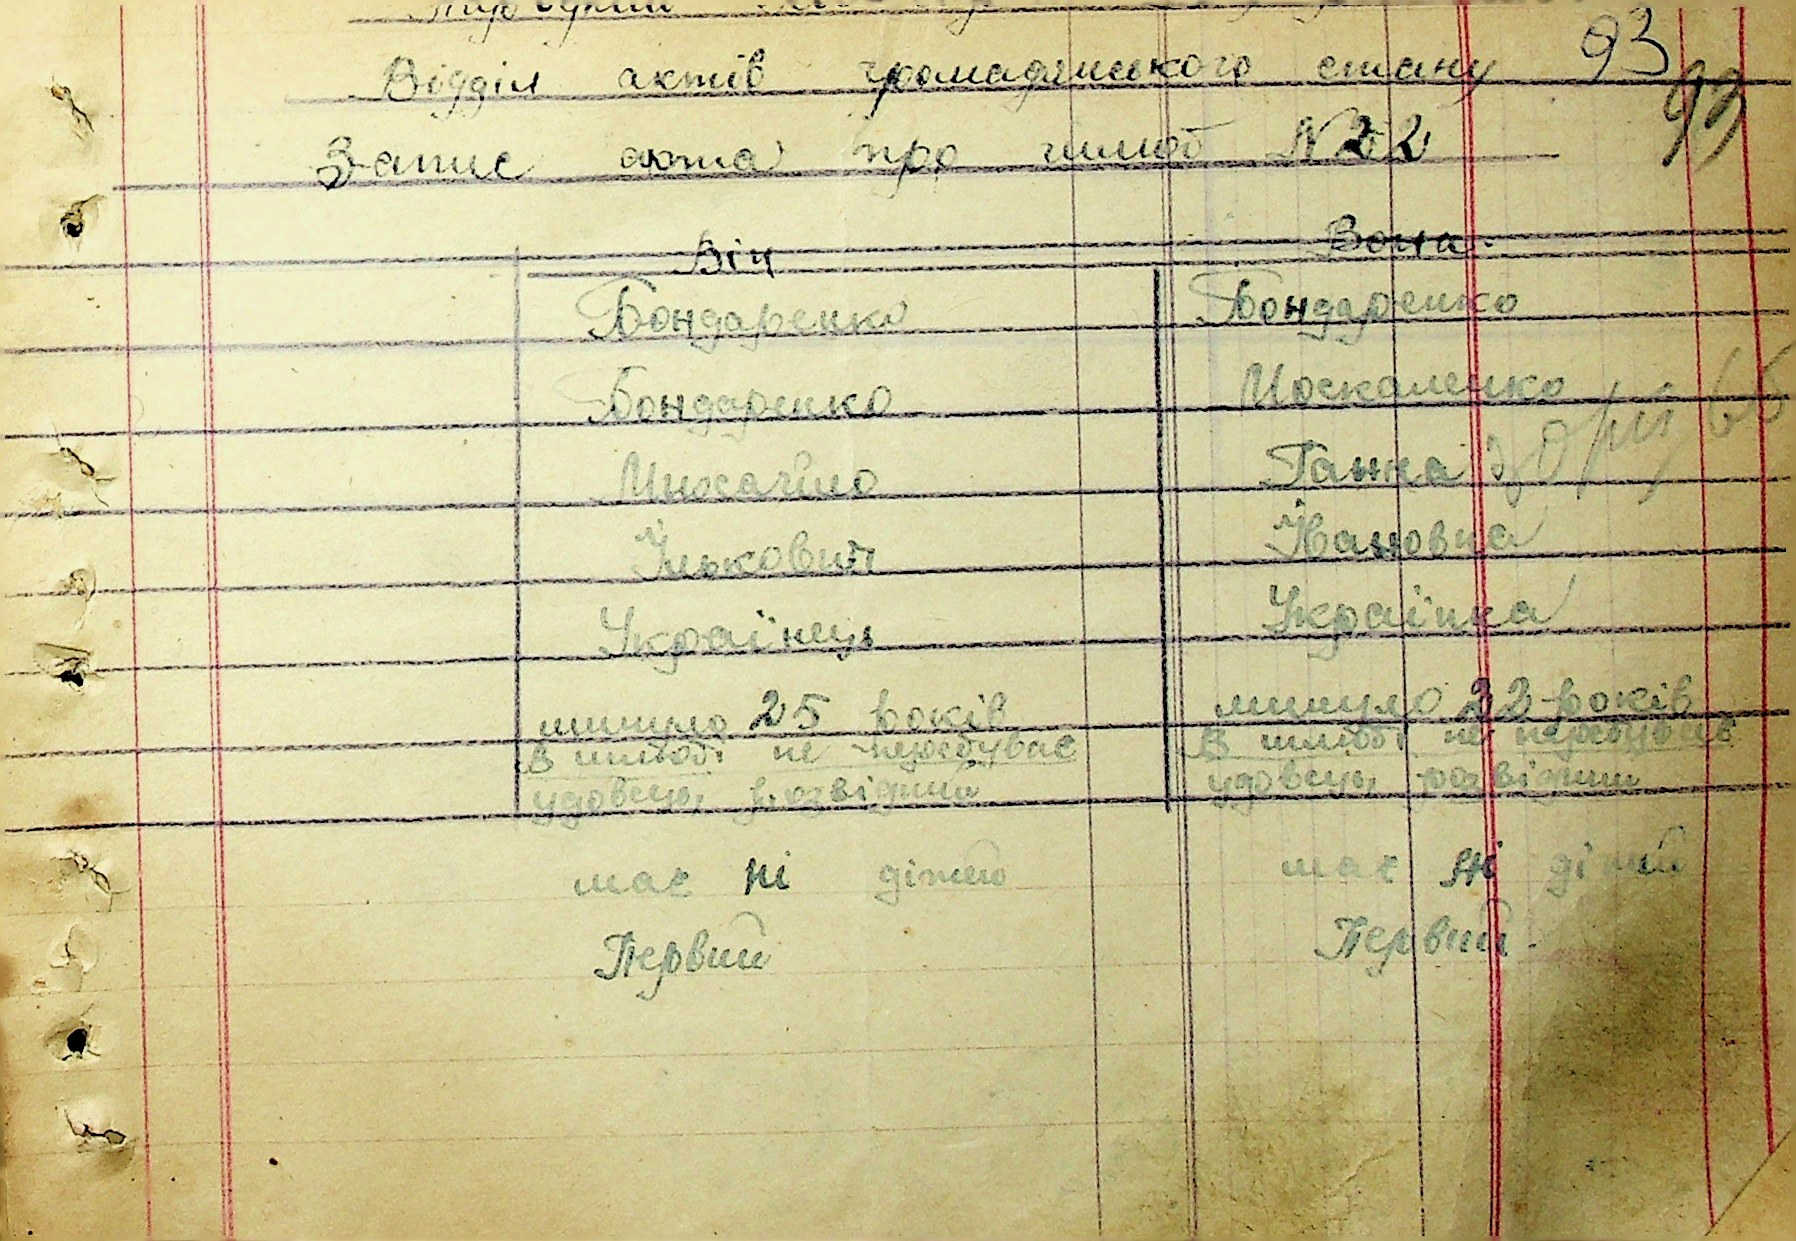 Відділ актів громадянського стану 93
Запис акта про шлюб N 22 93
Він Вона.
Бондаренко Бондаренко
Бондаренко Москаленко
Михайло Ганна
Їльковић Ївановна
Українець Українка
минуло 25 років минуло 22 років
в шлюбі не перебуває в шлюбі не перебуває
удовець, розвідний удовець, розвідний
має ні дітей має ні дітей
Первий Первий.